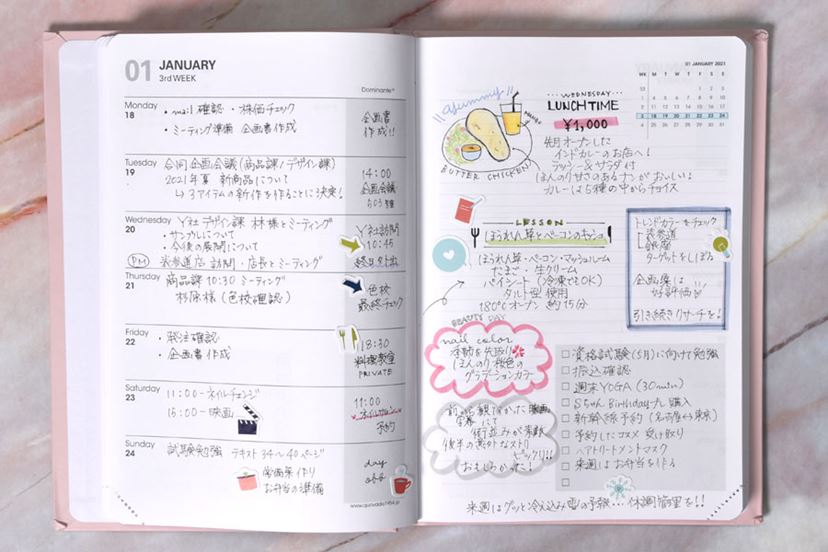 01 JANUARY
3rd WEEK
Dominante*
Monday
18
・mail確認 ・株価チェック
・ミーティング準備 企画書作成
企画書
作成!!
Tuesday
19
合同企画会議(商品課/デザイン課)
2021年夏 新商品について
↳3アイテムの新作を作ることに決定!
14:00
企画会議
503
Wednesday
20
Y社デザイン課 林様とミーティング
・サンプルについて
・今後の展開について
PM 表参道店 訪問・店長とミーティング
Y社訪問
10:45
終日外出
Thursday
21
商品課 10:30 ミーティング
杉原様(色校確認)
色校
最終チェック
Friday
22
・発注確認
・企画書作成
18:30
料理教室
PRIVATE
Saturday
23
11:00-ネイルチェンジ
15:00-映画
11:00
ネイルサロン
予約
Sunday
24
試験勉強 テキスト34~40ページ
常備菜作り
お弁当の準備
day
off
01 JANUARY 2021
yummy
BUTTER CHICKEN
Mango
WEDNESDAY
LUNCH TIME
¥1,000
先月オープンした
インドカレーのお店へ!
ラッシー&サラダ付
ほんのり甘さのあるナンがおいしい
カレーは5種の中からチョイス
LESSON
ほうれん草とベーコンのキッシュ
ほうれん草・ベーコン・マッシュルーム
たまご・生クリーム
パイシート(冷凍でもOK)
タルト型 使用
180℃オーブン 約15分
トレンドカラーをチェック
表参道
銀座
ターゲットをしぼる
企画集は
好評価!!
引き続きリサーチを!
BEAUTY DAY
nail color
季節を先取り
ほんのり桜色の
グラデーションカラー
前から観たかった映画
街並みが素敵
後半の意外なストーリー
ビックリ!!
おもしろかった!
□資格試験(5月)に向けて勉強
□振込確認
□週末YOGA(30min)
□Sちゃん Birthdayプレ購入
□新幹線予約(名古屋⇔東京)
□予約したコスメ 受け取り
□ヘアトリートメントマスク
□来週はお弁当を作る
□
来週はグッと冷え込み雪の予報…体調管理を!!